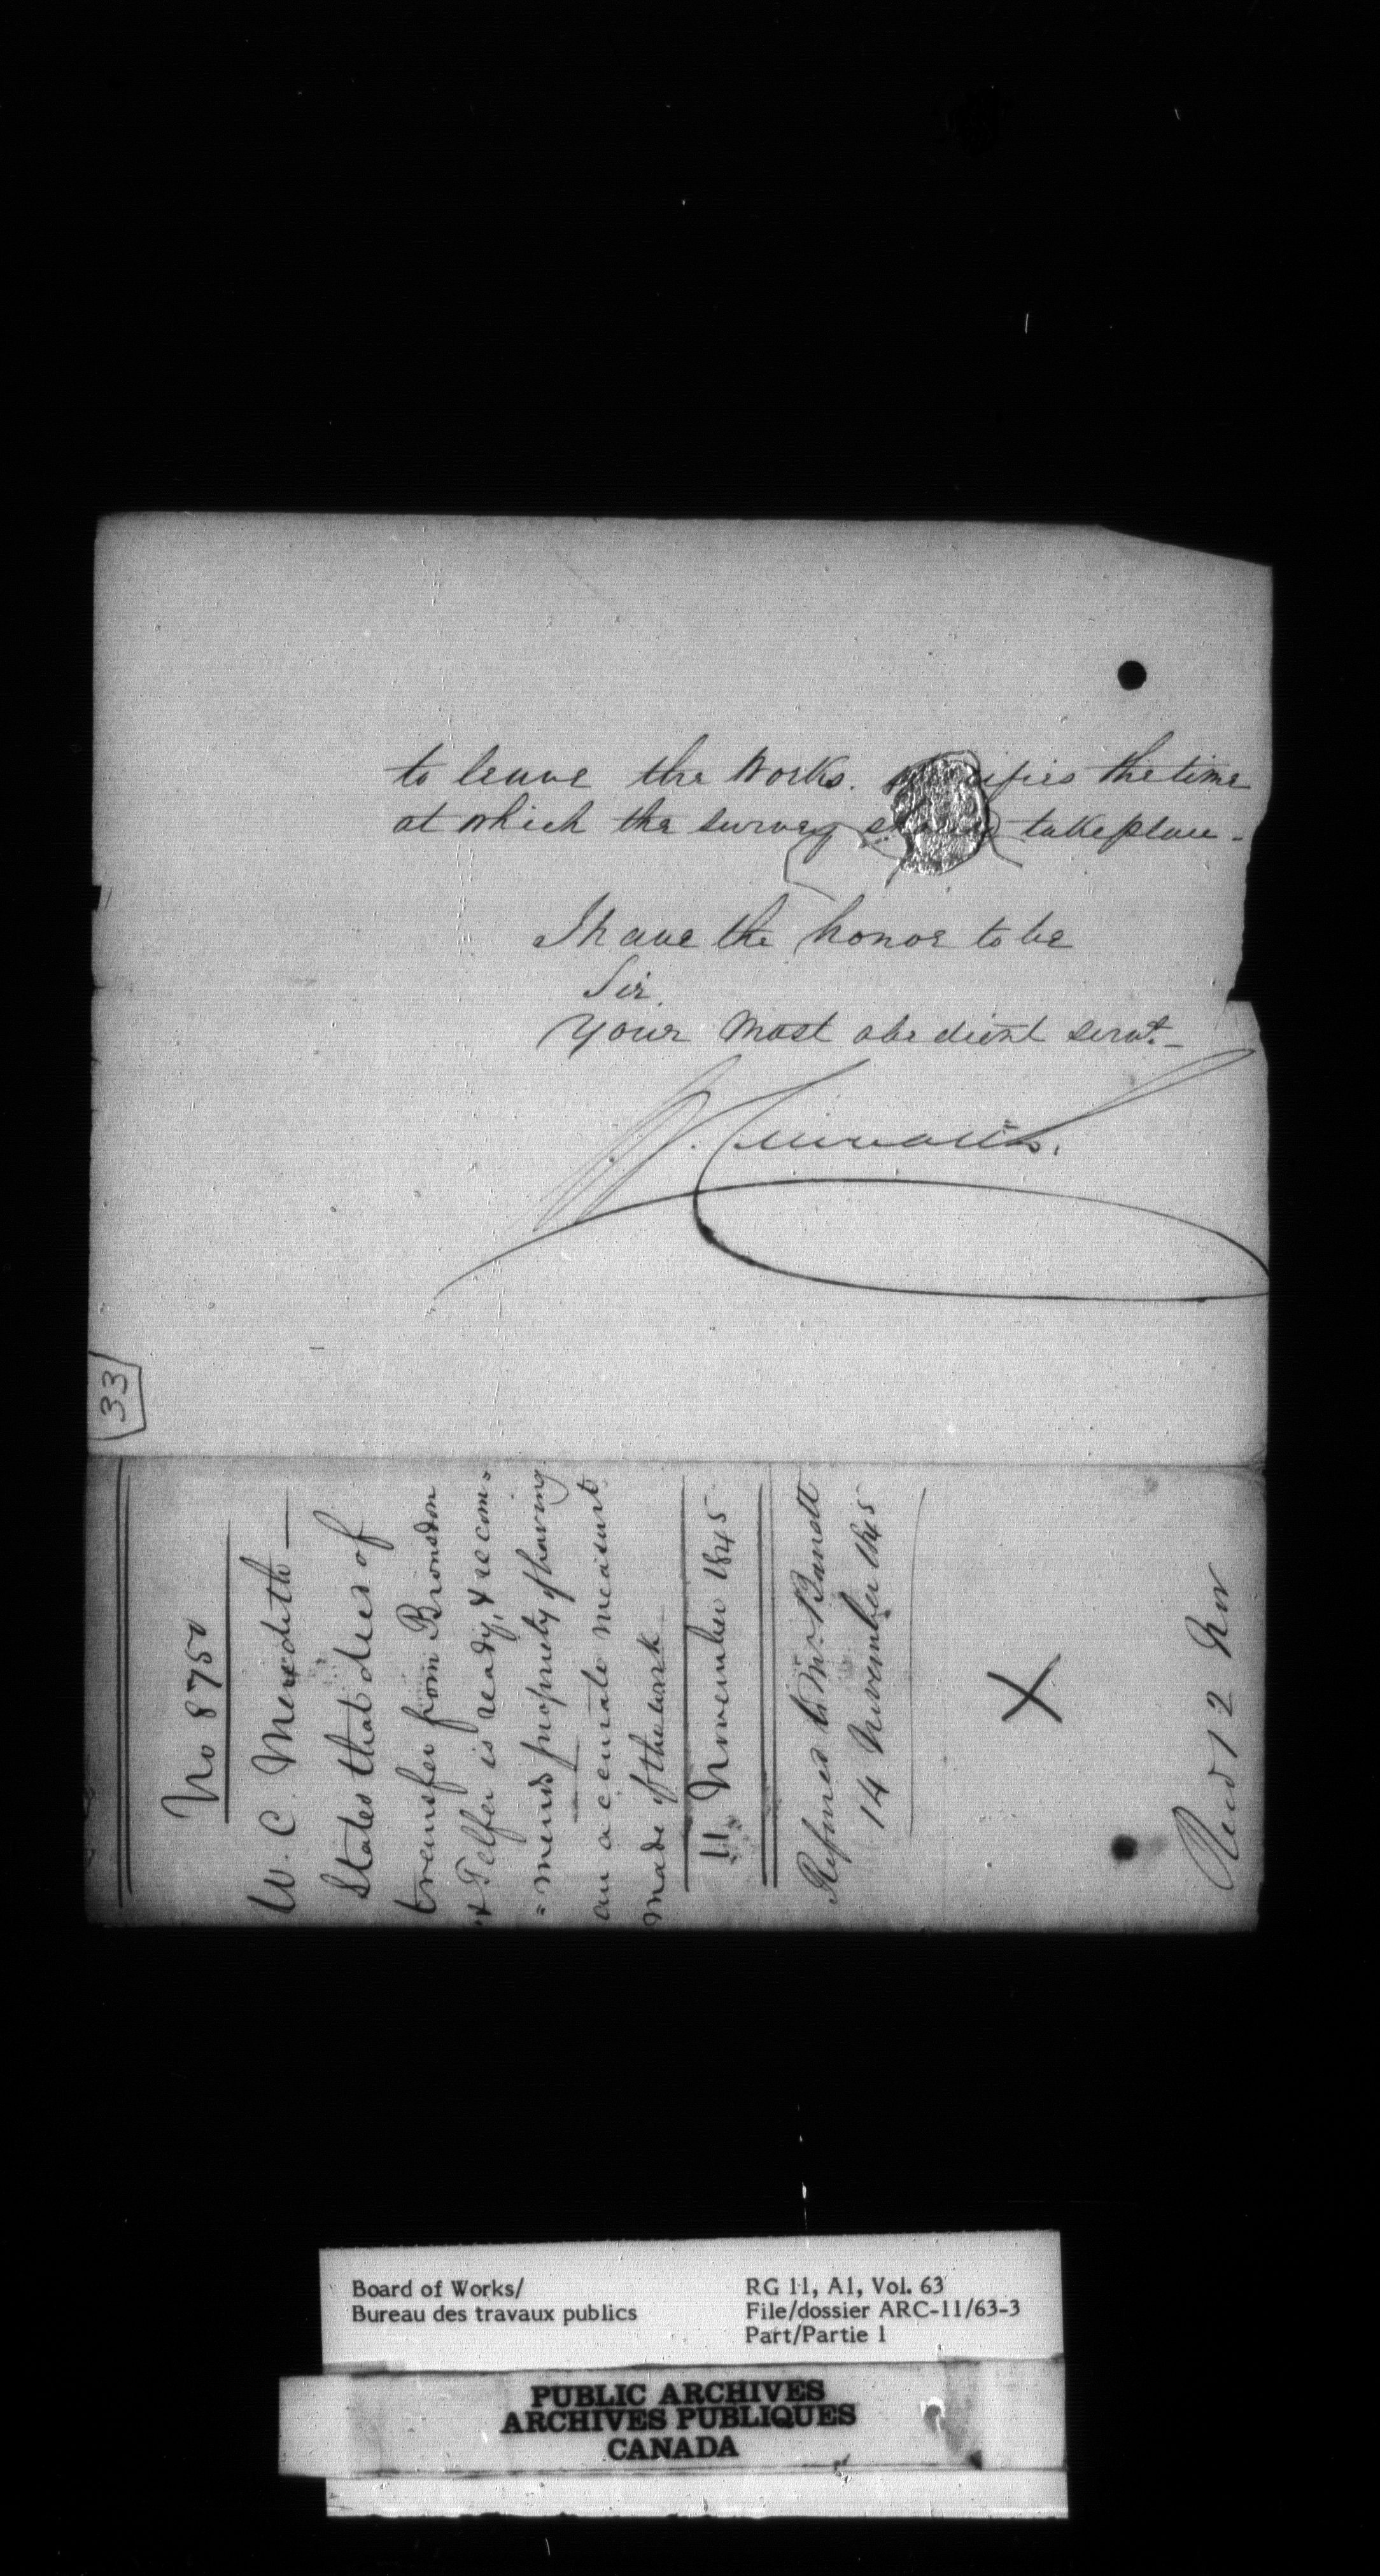 to leave the Works. the time
at which the survey take place -
I have the honor to be
Sir
Your Most obedient servt. -
33
No 8750
W. C. Meredith -
States that deed of
transfer from Bronsdon
& Telfer is ready, & recom=
=mends propriety of having
an accurate measurt.
made of the work
11 November 1845
Referred to Mr. Barrett
14 November 1845
X
Recd 12 Nov
Board of Works/
Bureau des travaux publics
RG 11, A1, Vol. 63
File/dossier ARC-11/63-3
Part/Partie 1
PUBLIC ARCHIVES
ARCHIVES PUBLIQUES
CANADA